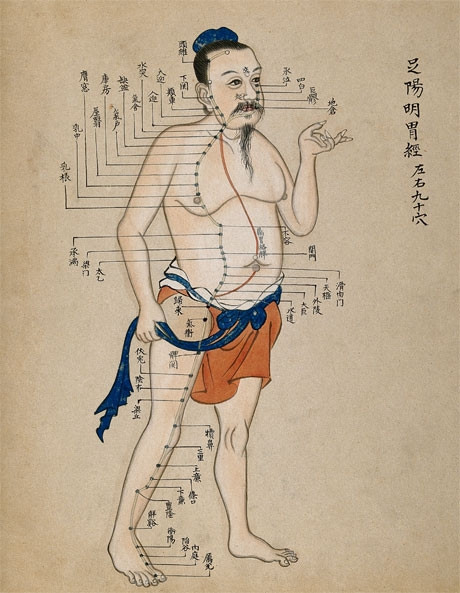 足陽明胃經
左右九十穴
頭維
下関
頰車
人迎
水突
氣舍
缺盆
氣户
庫房
屋翳
膺窓
乳中
乳根
四白
地倉
不容
承滿
梁门
太乙
関門
滑肉门
天樞
外陵
大巨
水道
歸来
氣衝
髀関
伏兎
陰市
梁丘
犢鼻
三里
上廉
條口
下廉
豐隆
解谿
衝陽
陷谷
内庭
厲兌